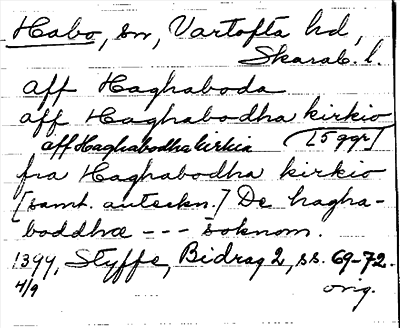 Habo, sn, Vartofta hd,
Skarab. l.
aff Haghaboda
aff Haghabodha kirkio
aff Haghabodha kirkia [5 ggr]
fra Haghabodha kirkio
[samt. anteckn.] De hagha-
boddhæ --- soknom.
1399, Styffe, Bidrag 2, ss. 69-72.
4/9 orig.